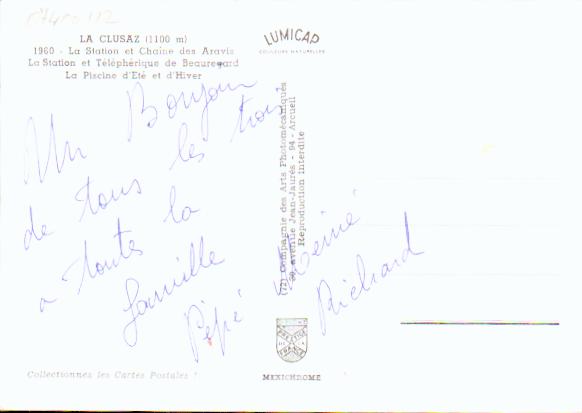 LA CLUSAZ (1100 m)
1960 - La Station et Chaîne des Aravis
La Station et Téléphérique de Beauregard
La Piscine d'Eté et d'Hiver
LUMICAP
COULEURS NATURELLES
Un Bonjour
de tous les trois
a toute la
famille
Pépé
Richard
(72) Compagnie des Arts Photomécaniques
avenue Jean-Jaurès - 94 - Arcueil
Reproduction interdite
PRESTIGE
DE LA
FRANCE
Collectionnez les Cartes Postales !
MEXICHROME